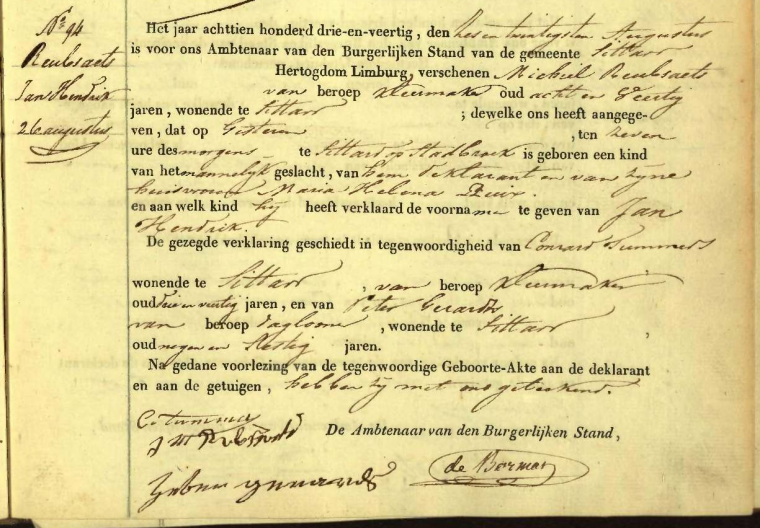 N° 94
Reubsaets
Jan Hendrik
26 augustus
Het jaar achttien honderd drie-en-veertig, den Zes en twintigsten Augustus
is voor ons Ambtenaar van den Burgerlijken Stand van de gemeente Sittard
Hertogdom Limburg, verschenen Michiel Reubsaets
van beroep kleermaker oud acht en Veertig
jaren, wonende te Sittard ; dewelke ons heeft aangege-
ven, dat op Gisteren , ten zeven
ure des morgens te Sittard op Stadbroek is geboren een kind
van het mannelijk geslacht, van hem deklarant en van zyne
huisvrouw Maria Helena
en aan welk kind hy heeft verklaard de voorna me te geven van Jan
Hendrik.
De gezegde verklaring geschiedt in tegenwoordigheid van Conrard Tummers
wonende te Sittard , van beroep kleermaker
oud drie en veertig jaren, en van Peter Gerards
van beroep dagloner , wonende te Sittard ,
oud negen en Zestig jaren.
Na gedane voorlezing van de tegenwoordige Geboorte-Akte aan de deklarant
en aan de getuigen, hebben zy met ons geteekend.
De Ambtenaar van den Burgerlijken Stand,
de Borman